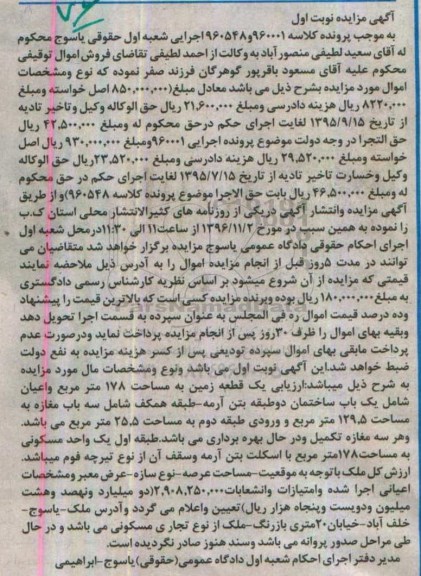 ۷۶
آگهی مزایده نوبت اول
به موجب پرونده کلاسه ۹۶۰۰۰۱و۹۶۰۵۴۸اجرایی شعبه اول حقوقی یاسوج محکوم
له آقای سعید لطیفی منصورآباد به وکالت از احمد لطیفی تقاضای فروش اموال توقیفی
محکوم علیه آقای مسعود باقرپور گوهرگان فرزند صفر نموده که نوع ومشخصات
اموال مورد مزایده بشرح ذیل می باشد معادل مبلغ(۸۵۰،۰۰۰،۰۰۰ اصل خواسته ومبلغ
۸۲۲۰،۰۰۰ ریال هزینه دادرسی ومبلغ ۲۱،۶۰۰،۰۰۰ ریال حق الوکاله وکیل و تاخیر تادیه
از تاریخ ۱۳۹۵/۹/۱۵ لغایت اجرای حکم درحق محکوم له ومبلغ ۴۲،۵۰۰،۰۰۰ ریال
حق التجرا در وجه دولت موضوع پرونده اجرایی ۹۶۰۰۰۱ومبلغ ۹۳۰،۰۰۰،۰۰۰ ریال اصل
خواسته ومبلغ ۲۹،۵۲۰،۰۰۰ ریال هزینه دادرسی ومبلغ ۲۳،۵۲۰،۰۰۰ریال حق الوکاله
وکیل وخسارت تاخیر تادیه از تاریخ ۱۳۹۵/۷/۱۵ لغایت اجرای حکم در حق محکوم
له ومبلغ ۴۶،۵۰۰،۰۰۰ ریال بابت حق الاجرا موضوع پرونده کلاسه ۹۶۰۵۴۸)و از طریق
آگهی مزایده وانتشار آگهی دریکی از روزنامه های کثیرالانتشار محلی استان ک.ب
را نموده به همین سبب در مورخ ۱۳۹۶/۱۱/۲ از ساعت۱۱ الی ۱۱:۳۰درمحل شعبه اول
اجرای احکام حقوقی دادگاه عمومی یاسوج مزایده برگزار خواهد شد متقاضیان می
توانند در مدت ۵روز قبل از انجام مزایده اموال را به آدرس ذیل ملاحضه نمایند
قیمتی که مزایده از آن شروع میشود بر اساس نظریه کارشناس رسمی دادگستری
به مبلغ ۱۸۰،۰۰۰،۰۰۰ ریال بوده وبرنده مزایده کسی است که بالاترین قیمت را پیشنهاد
وده درصد قیمت اموال ره فی المجلس به عنوان سپرده به قسمت اجرا تحویل دهد
وبقیه بهای اموال را ظرف ۳۰روز پس از انجام مزایده پرداخت نماید ودرصورت عدم
پرداخت مابقی بهای اموال سپرده تودیعی پس از کسر هزینه مزایده به نفع دولت
ضبط خواهد شد.این آگهی نوبت اول می باشد ونوع ومشخصات مال مورد مزایده
به شرح ذیل میباشد:ارزیابی یک قطعه زمین به مساحت ۱۷۸ متر مربع واعیان
شامل یک باب ساختمان دوطبقه بتن آرمه-طبقه همکف شامل سه باب مغازه به
مساحت ۱۲۹،۵ متر مربع و ورودی طبقه دوم به مساحت ۲۵،۵ متر مربع می باشد.
وهر سه مغازه تکمیل ودر حال بهره برداری می باشد.طبقه اول یک واحد مسکونی
به مساحت۱۷۸متر مربع با اسکلت بتن آرمه وسقف آن از نوع تیرچه فوم میباشد.
ارزش کل ملک با توجه به موقعیت-مساحت عرصه-نوع سازه-عرض معبر ومشخصات
اعیانی اجرا شده وامتیازات وانشعابات۲،۹۰۸،۲۵۰،۰۰۰(دو میلیارد ونهصد وهشت
میلیون ودویست وپنجاه هزار ریال)تعیین واعلام می گردد وآدرس ملک-یاسوج-
خلف آباد-خیابان۲۰متری بازرنگ-ملک از نوع تجاری مسکونی می باشد و در حال
طی مراحل صدور پروانه می باشد وسند هنوز صادر نگردیده است.
مدیر دفتر اجرای احکام شعبه اول دادگاه عمومی(حقوقی)یاسوج-ابراهیمی